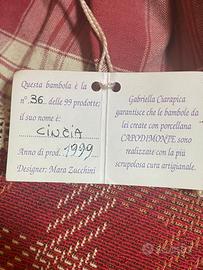 Questa bambola è la
n° 36 delle 99 prodotte;
il suo nome è:
CINZIA
Anno di prod. 1999
Designer: Mara Zucchini
Gabriella Ciarapica
garantisce che le bambole da
lei create con porcellana
CAPODIMONTE sono
realizzate con la più
scrupolosa cura artigianale.